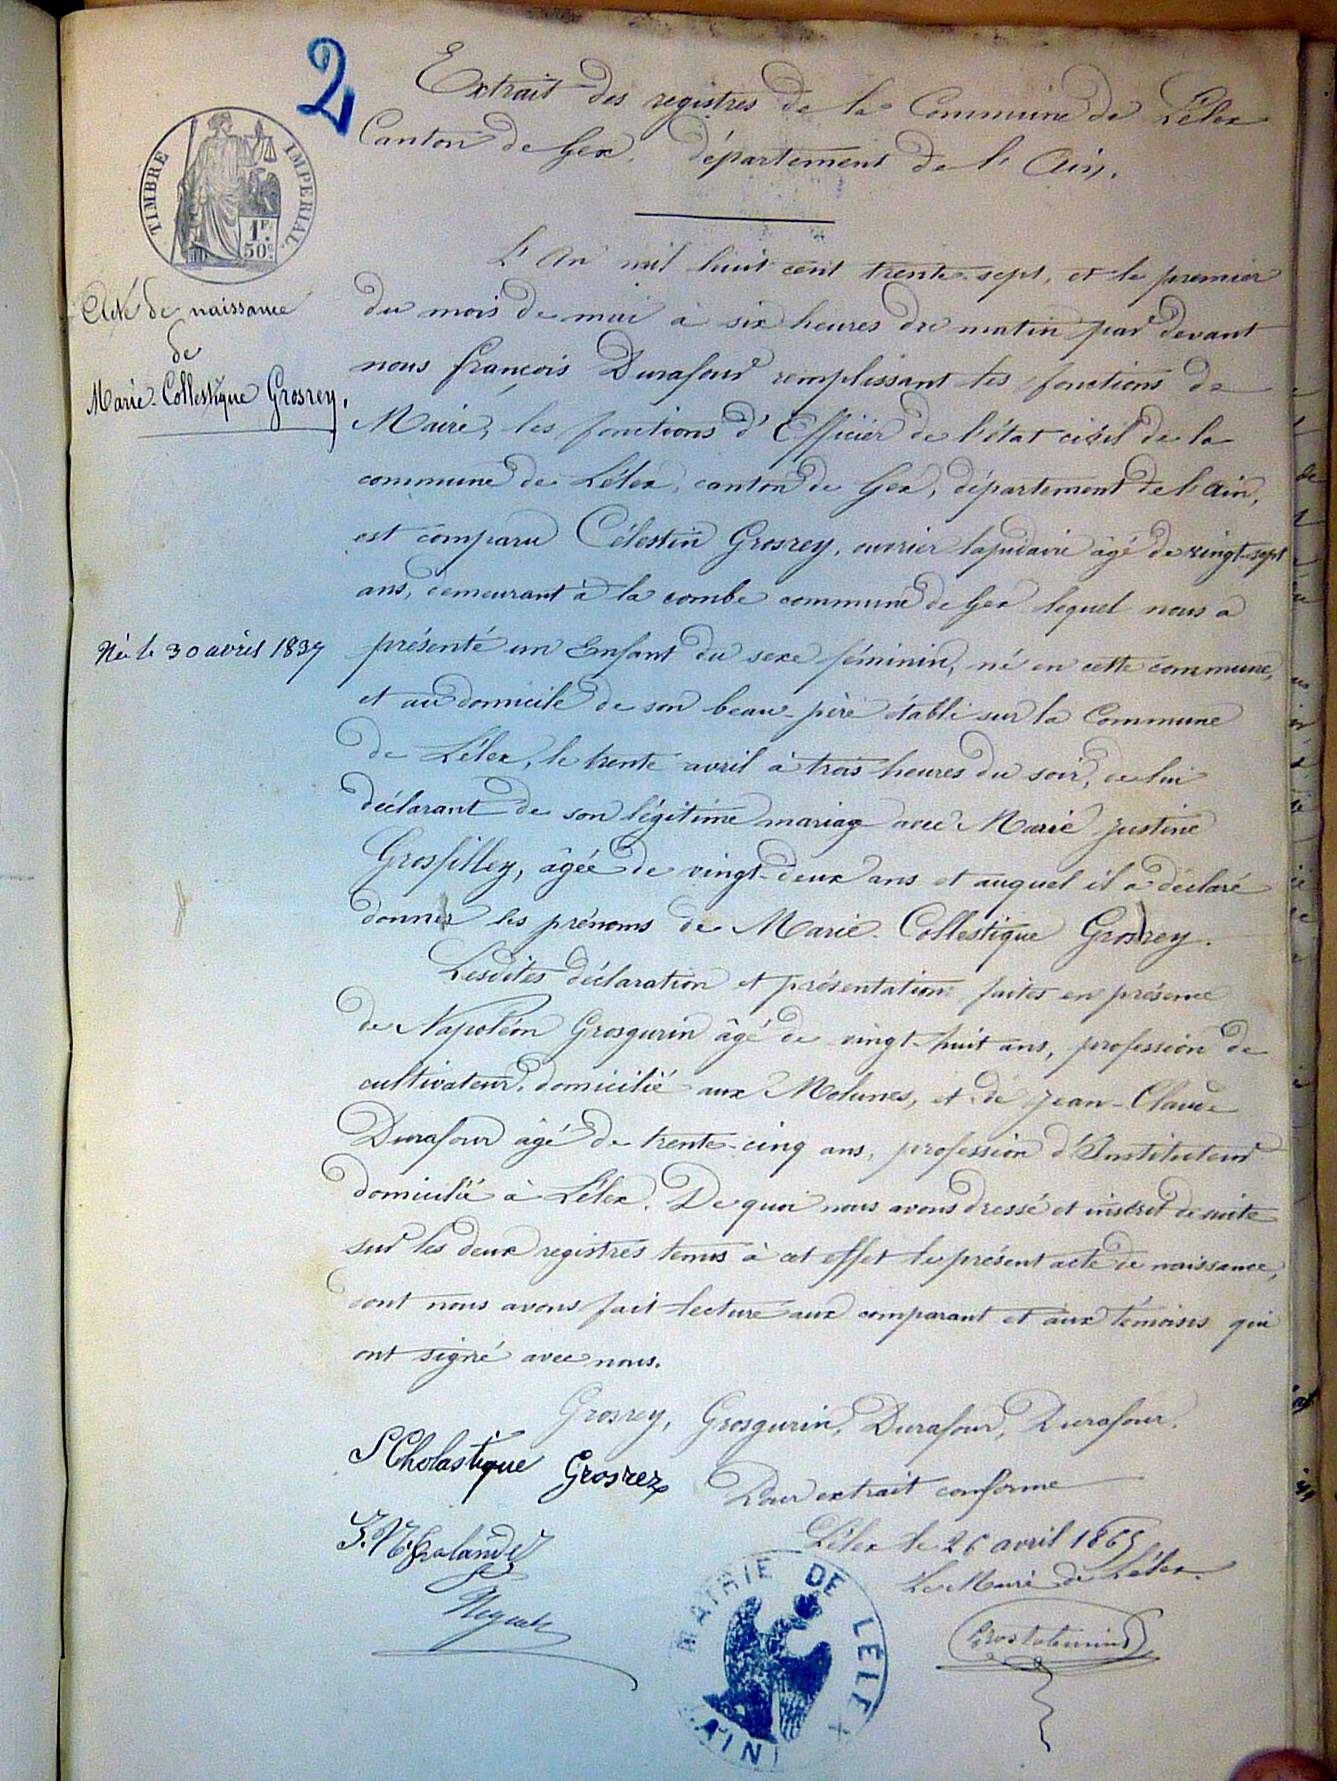 2
Extrait des registres de la Commune de Lélex
Canton de Gex, département de l'Ain.
TIMBRE IMPERIAL.
1F.
50c
Acte de naissance
de
Marie-Collestique Grosrey.
L'An mil huit cent trente-sept, et le premier
du mois de mai à six heures du matin par devant
nous françois Durafour remplissant les fonctions de
Maire, les fonctions d'Officier de l'état civil de la
commune de Lélex, canton de Gex, département de l'Ain,
est comparu Célestin Grosrey, ouvrier lapidaire âgé de vingt-sept
ans, demeurant à la combe commune de Gex lequel nous a
Née le 30 avril 1837
présenté un Enfant du sexe féminin, né en cette commune,
et au domicile de son beau-père établi sur la Commune
de Lélex, le trente avril à trois heures du soir, de lui
déclarant de son légitime mariage avec Marie Justine
Grosfilley, âgée de vingt-deux ans et auquel il a déclaré
donner les prénoms de Marie-Collestique Grosrey.
Lesdites déclaration et présentation faites en présence
de Napoléon Grosgurin âgé de vingt-huit ans, profession de
cultivateur, domicilié aux Molunes, et de Jean-Claude
Durafour âgé de trente-cinq ans, profession d'Instituteur
domicilié à Lélex. De quoi nous avons dressé et inscrit de suite
sur les deux registres tenus à cet effet le présent acte de naissance,
dont nous avons fait lecture aux comparant et aux témoins qui
ont signé avec nous.
Grosrey, Grosgurin, Durafour, Durafour.
SCholastique Grosrez
Pour extrait conforme
Lélex le 26 avril 1865
Le Maire de Lélex.
MAIRIE DE LÉLEX
(AIN)